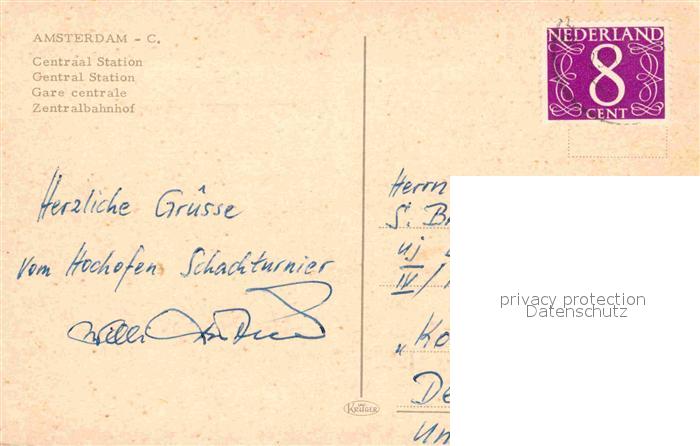 AMSTERDAM - C.
Centraal Station
Gentral Station
Gare centrale
Zentralbahnhof
NEDERLAND
8
CENT
Herzliche Grüsse
vom Hochofen Schachturnier
Willi
Herrn
S. B
uj
IV/
privacy protection
Datenschutz
"Ko
De
Un
KRÜGER